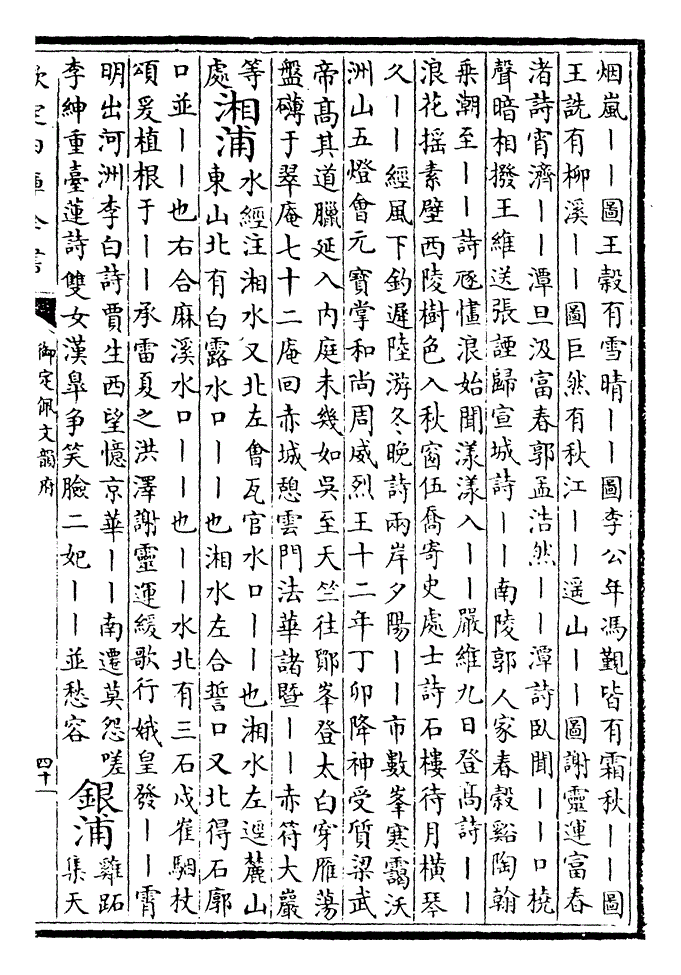 烟嵐丨丨圖王穀有雪晴丨丨圖李公年馮覲皆有霜秋丨丨圖
王詵有柳溪丨丨圖巨然有秋江丨丨遥山丨丨圖謝靈運富春
渚詩宵濟丨丨潭旦汲富春郭孟浩然丨丨潭詩臥聞丨丨口橈
聲暗相撥王維送張諲歸宣城詩丨丨南陵郭人家春穀谿陶翰
乘潮至丨丨詩浪始聞漾漾入丨丨嚴維九日登髙詩丨丨
浪花揺素壁西陵樹色入秋窗伍喬寄史處士詩石樓待月橫琴
久丨丨經風下釣遲陸游冬晚詩兩岸夕陽丨丨市數峯寒靄沃
洲山五燈會元寶掌和尚周威烈王十二年丁卯降神受質梁武
帝髙其道臘延入内庭未幾如吳至天竺往鄮峯登太白穿雁蕩
盤礡于翠庵七十二庵囘赤城憩雲門法華諸暨丨丨赤符大巖
等
處
湘浦
水經注湘水又北左㑹瓦官水口丨丨也湘水左逕麓山
東山北有白露水口丨丨也湘水左合誓口又北得石郭
口並丨丨也右合麻溪水口丨丨也丨丨水北有三石戍崔駰杖
頌爰植根于丨丨承雷夏之洪澤謝靈運緩歌行娥皇發丨丨霄
明出河洲李白詩賈生西望憶京華丨丨南遷莫怨嗟
李紳重臺蓮詩雙女漢臯争笑臉二妃丨丨並愁容
銀浦
雞跖
集天
欽定四庫全書
御定佩文韻府
四十一